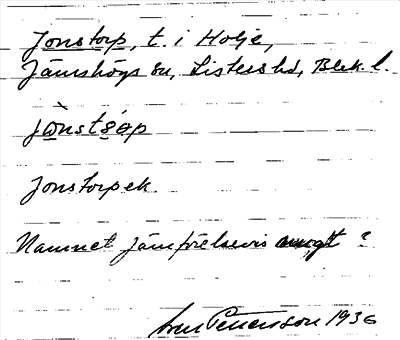 Jonstorp, t. i Holje,
Jämshögs sn, Listers hd, Blek. l.
jònstɶp
Jonstorpek.
Namnet jämförelsevis ungt ?
Sven Pettersson 1936